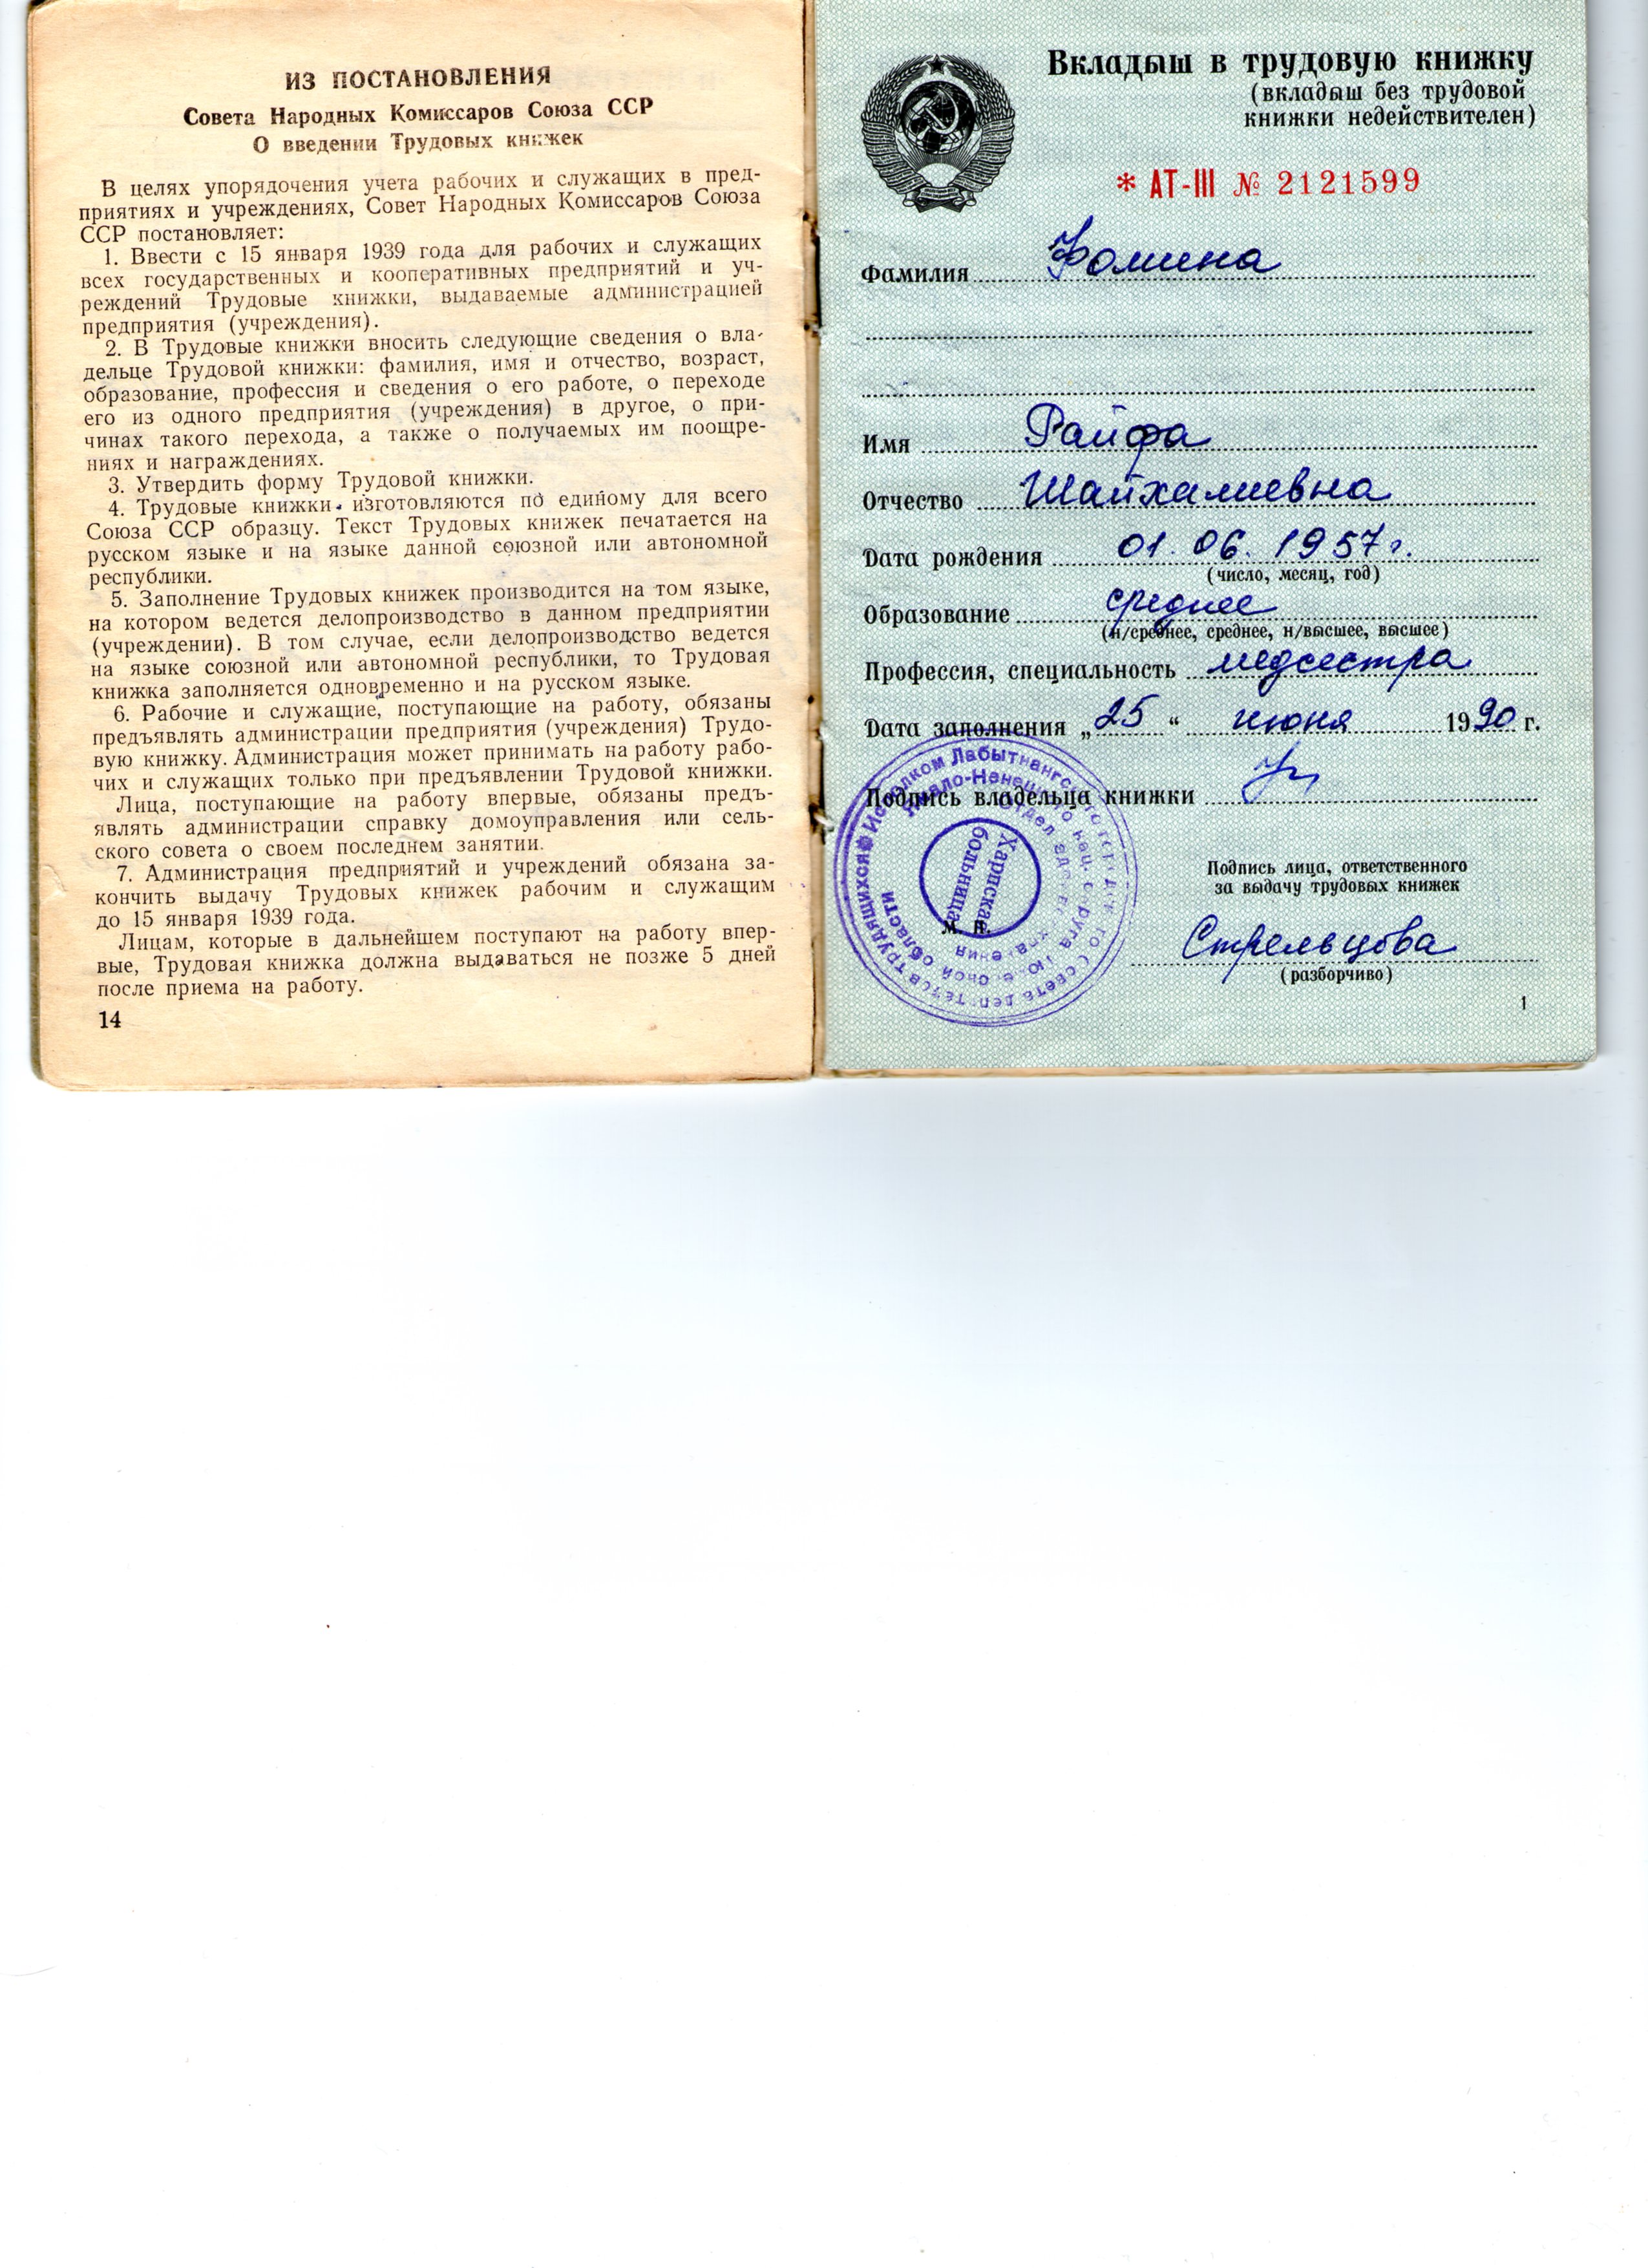 ИЗ ПОСТАНОВЛЕНИЯ
Совета Народных Комиссаров Союза ССР
О введении Трудовых книжек
В целях упорядочения учета рабочих и служащих в пред-
приятиях и учреждениях, Совет Народных Комиссаров Союза
ССР постановляет:
1. Ввести с 15 января 1939 года для рабочих и служащих
всех государственных и кооперативных предприятий и уч-
реждений Трудовые книжки, выдаваемые администрацией
предприятия (учреждения).
2. В Трудовые книжки вносить следующие сведения о вла-
дельце Трудовой книжки: фамилия, имя и отчество, возраст,
образование, профессия и сведения о его работе, о переходе
его из одного предприятия (учреждения) в другое, о при-
чинах такого перехода, а также о получаемых им поощре-
ниях и награждениях.
3. Утвердить форму Трудовой книжки.
4. Трудовые книжки изготовляются по единому для всего
Союза ССР образцу. Текст Трудовых книжек печатается на
русском языке и на языке данной союзной или автономной
республики.
5. Заполнение Трудовых книжек производится на том языке,
на котором ведется делопроизводство в данном предприятии
(учреждении). В том случае, если делопроизводство ведется
на языке союзной или автономной республики, то Трудовая
книжка заполняется одновременно и на русском языке.
6. Рабочие и служащие, поступающие на работу, обязаны
предъявлять администрации предприятия (учреждения) Трудо-
вую книжку. Администрация может принимать на работу рабо-
чих и служащих только при предъявлении Трудовой книжки.
Лица, поступающие на работу впервые, обязаны предъ-
являть администрации справку домоуправления или сель-
ского совета о своем последнем занятии.
7. Администрация предприятий и учреждений обязана за-
кончить выдачу Трудовых книжек рабочим и служащим
до 15 января 1939 года.
Лицам, которые в дальнейшем поступают на работу впер-
вые, Трудовая книжка должна выдаваться не позже 5 дней
после приема на работу.
14
Вкладыш в трудовую книжку
(вкладыш без трудовой
книжки недействителен)
* АТ-III № 2121599
Фамилия Фомина
Имя Раифа
Отчество Шайхалиевна
Дата рождения 01.06.1957г.
(число, месяц, год)
Образование среднее
(н/среднее, среднее, н/высшее, высшее)
Профессия, специальность медсестра
Дата заполнения „25“ июня 1990 г.
Подпись владельца книжки
Исполком Лабытнангского
трудящихся
Ямало-Ненецкого
области
Отдел
Харпская
больница
М. П.
Подпись лица, ответственного
за выдачу трудовых книжек
Стрельцова
(разборчиво)
1